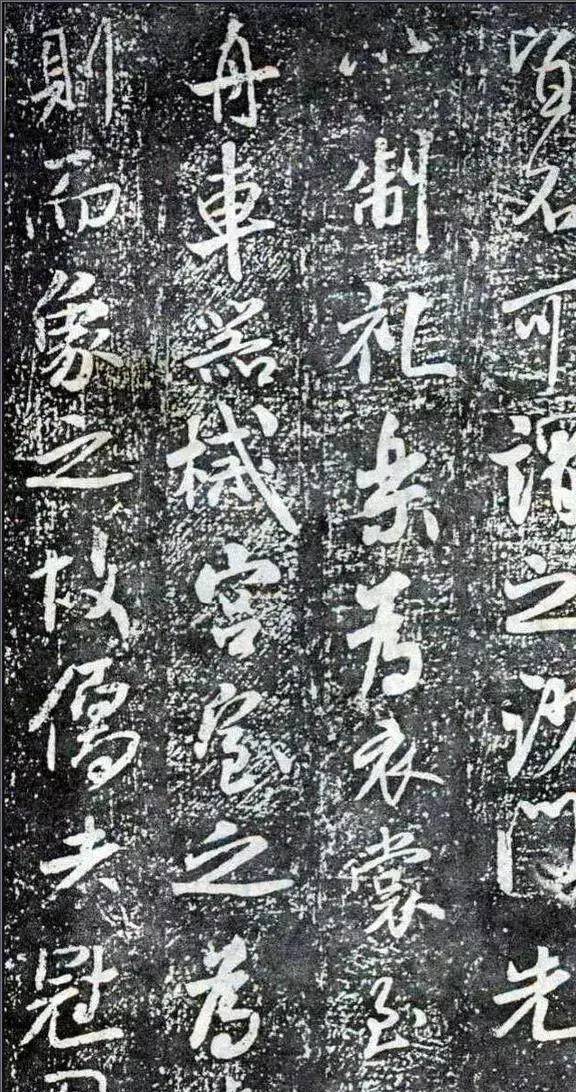 名可謂之門先
以制礼樂為衣裳至
舟車器械宮室之為
則而象之故夫冠